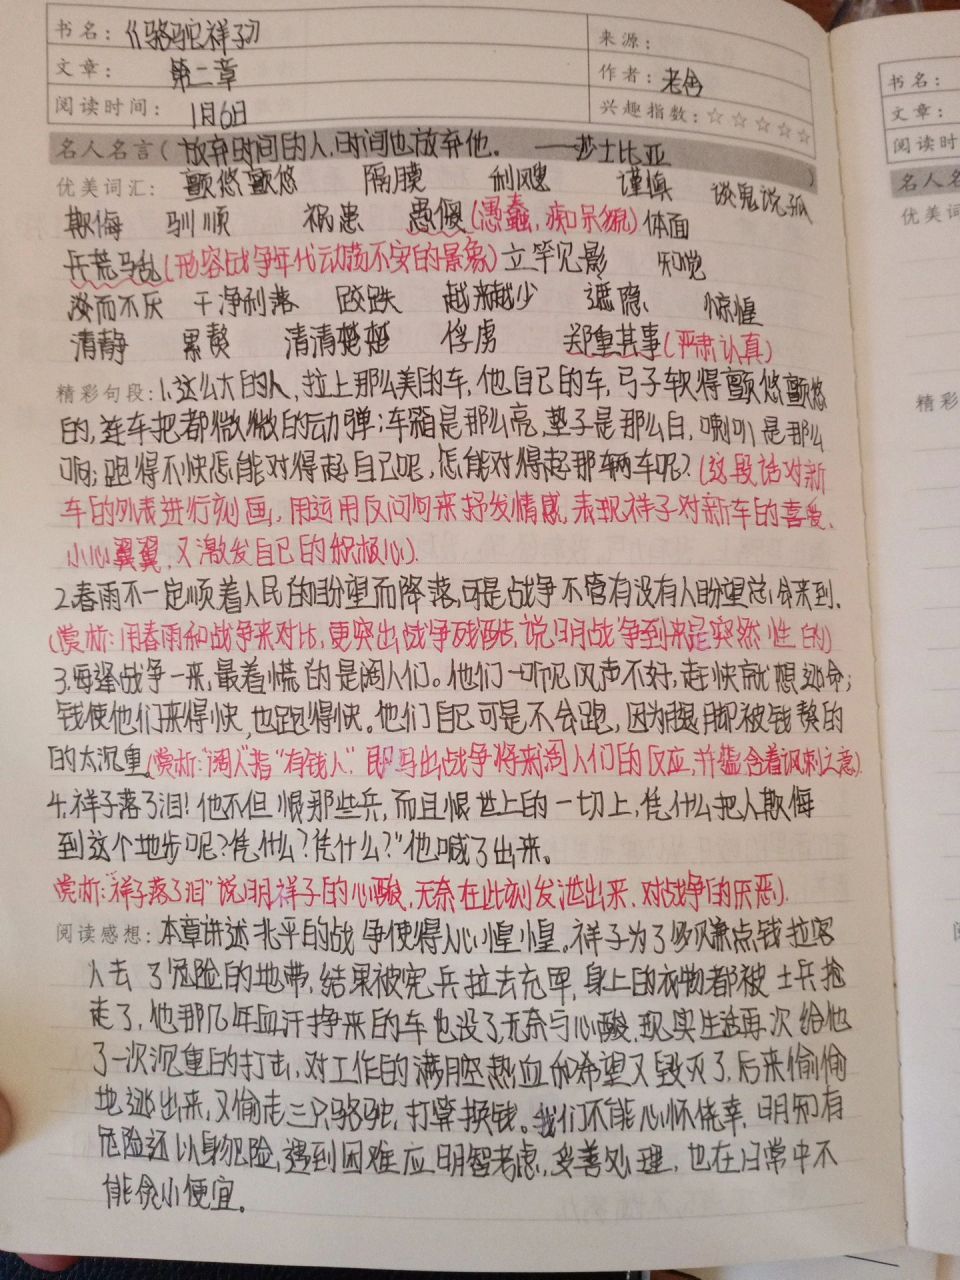 书名：《骆驼祥子》
来源：
文章：第二章
作者：老舍
阅读时间：1月6日
兴趣指数：☆☆☆☆☆
名人名言（放弃时间的人，时间也放弃他。——莎士比亚）
优美词汇：颤悠颤悠 隔膜 利飕 谨慎 谈鬼说狐
欺侮 驯顺 祸患 愚傻（愚蠢，痴呆貌）体面
兵荒马乱（形容战争年代动荡不安的景象）立竿见影 知觉
涩而不厌 干净利落 跤跌 越来越少 遮隐 惊惶
清静 累赘 清清楚楚 俘虏 郑重其事（严肃认真）
精彩句段：1.这么大的人，拉上那么美的车，他自己的车，弓子软得颤悠颤悠
的，连车把都微微的动弹；车箱是那么亮，垫子是那么白，喇叭是那么
响；跑得不快怎能对得起自己呢，怎能对得起那辆车呢？（这段话对新
车的外表进行刻画，用运用反问句来抒发情感，表现祥子对新车的喜爱、
小心翼翼，又激发自己的积极心）.
2.春雨不一定顺着人民的盼望而降落，可是战争不管有没有人盼望总会来到.
（赏析：用春雨和战争来对比，更突出战争残酷，说明战争到来是突然性的）
3.每逢战争一来，最着慌的是阔人们。他们一听见风声不好，赶快就想逃命；
钱使他们来得快，也跑得快。他们自己可是不会跑，因为腿脚被钱赘的
的太沉重（赏析：“阔人”指“有钱人”，即写出战争将来阔人们的反应，并蕴含着讽刺之意）.
4.祥子落了泪！他不但恨那些兵，而且恨世上的一切上，凭什么把人欺侮
到这个地步呢？凭什么？凭什么？”他喊了出来。
赏析：“祥子落了泪”说明祥子的心酸，无奈在此刻发泄出来，对战争的厌恶）.
阅读感想：本章讲述北平的战争使得人心惶惶。祥子为了多赚点钱拉客
人去了危险的地带，结果被宪兵拉去充军，身上的衣物都被士兵抢
走了，他那几年血汗挣来的车也没了，无奈与心酸，现实生活再次给他
了一次沉重的打击，对工作的满腔热血和希望又毁灭了，后来偷偷
地逃出来，又偷走三只骆驼，打算换钱。我们不能心怀侥幸，明知有
危险还以身犯险，遇到困难应明智考虑，妥善处理，也在日常中不
能贪小便宜。
书名：
文章：
阅读时
名人名
优美词
精彩